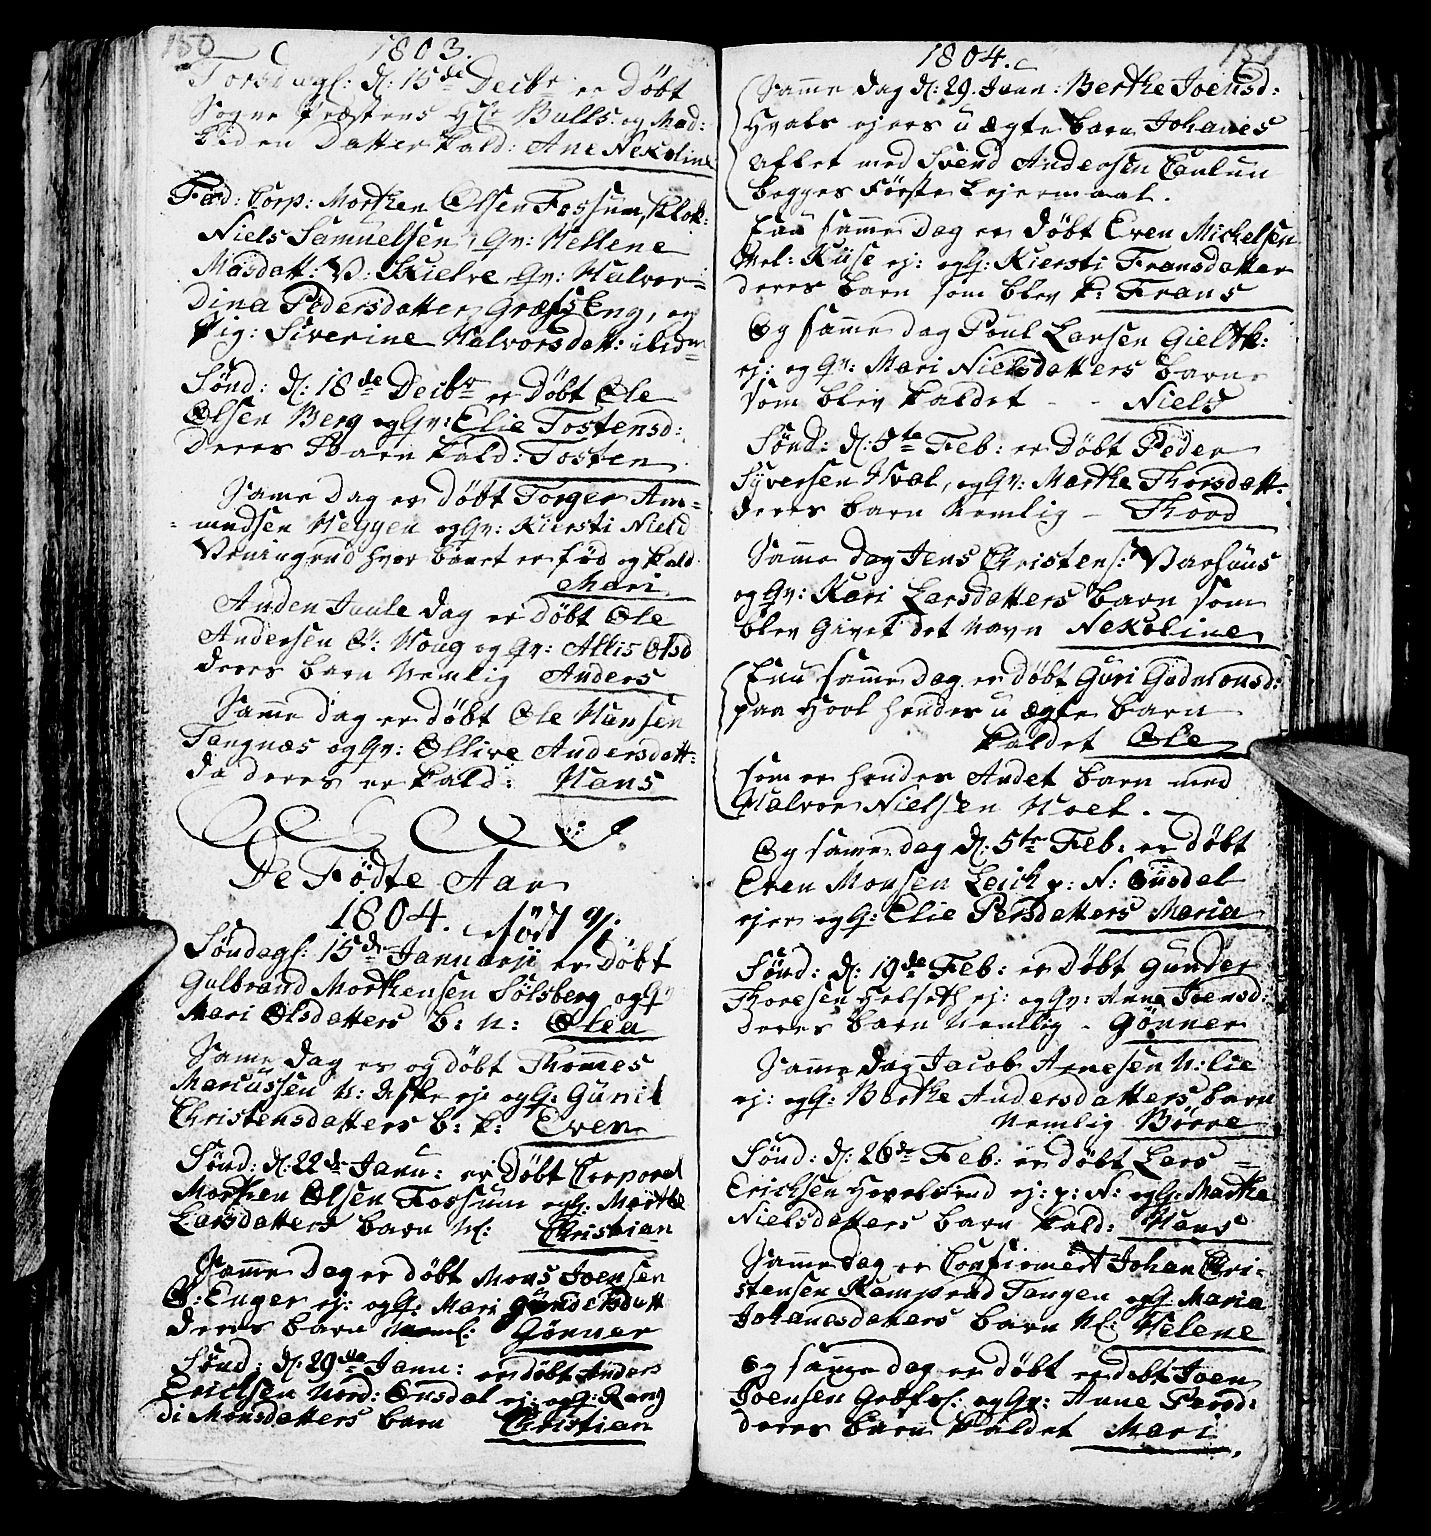 150
1803.
Torsdags: d: 15de Decbr er døbt
Sogne Præstens Hr Bulls og Mad:
liden Datter kald: Ane Nekoline
Fad: Corp: Morthen Olsen Fossum, Klok:
Niels Samuelsen, Gv: Hellene
Masdatt: V: Skielve Gv: Halvor=
dina Pedersdatter Græfs Eng, og
Pig: Siverine Halvorsdatt: ibidm
Sønd: d: 18de Decbr er døbt Ole
Olsen Berg og Gv: Elie Tostensd:
deres Barn kald: Tosten
Same Dag er døbt Torger Am=
=undsen Heggen og Gv: Kiersti Nielsd
hvor barnet er fød og kald
Mari
Anden Juule dag er døbt Ole
Andersen Ø: Houg og Gv: Allis Olsd
deres barn Nemlig Anders
Samme dag er døbt Ole Hansen
Tangnæs og Gv: Ollive Andersdatt:
da deres er kald: Hans
De Fødte Aar
1804.
Søndags: 15de Januarji er døbt
Gulbrand Morthensen Sølsberg og Gv
Mari Olsdatters b: N: Olea
Same dag er og døbt Thommes
Marcussen N: Aske ej: og G: Gunil
Christensdatters b: k: Even
Sønd: d: 22de Janu: er døbt Corporal
Morthen Olsen Fossum og G: Marthe
Larsdatters barn Nl: Christian
Samme Dag er døbt Mons Joensen
Ø: Enger ej: og G: Mari Gundersdatt
deres barn Neml: Gønner
Sønd: d: 29de Janu: er døbt Anders
Erichsen Nord: Onsdal ej: og G: Rang
di Monsdatters barn Christian
1804.
151
Samme dag d: 29. Janu: Berthe Joensd:
Hvals ejers uægte barn Johanes
aflet med Svend Andersen
begges Første Lejermaal.
Enu samme Dag er døbt Even Mickelsen
Vel: Kiise ej: og G: Kiersti Fransdatter
deres barn som blev k: Frans
Og samme dag Poul Larsen Gielth:
ej: og Gv: Mari Nielsdatters barn
som blev kaldet - - Niels
Sønd: d: 5te Feb: er døbt Peder
Syversen Hval, og Gv: Marthe Thorsdatt.
deres barn Nemlig - Thord
Samme dag Jens Christens: Varhuus
og Gv: Kari Larsdatters barn som
blev Givet det Navn Nekoline
Enu samme dag er døbt Guri Gudmonsd:
paa Hovl hendes uægte barn
kaldet Ole
som er hendes Andet barn med
Halvor Nielsen Hoel.
Og samme dag d: 5te Feb: er døbt
Even Monsen Leich p: N: Onsdal
ejer og G: Elie Persdatters Maria
Sønd: d: 19de Feb: er døbt Gunder
Thoresen Helseth ej: og Gv: Anne Joensd:
deres barn Nemlig - Gønner
Samme dag Jacob Arnesen N: Lie
ej: og G: Berthe Andersdatters barn
Nemlig Børre
Sønd: d: 26de Feb: er døbt Lars
Erichsen Hovelsrud ej: p: N: og G: Marthe
Nielsdatters barn kald: Hans
Samme dag er Confirmert Johan Chri-
stensen Kamprud Tangen og G: Maria
Johanesdatters barn Nl: Helene
Og samme dag er døbt er døbt Joen
Joensen Gv: Anne Persd:
deres barn kaldet Mari